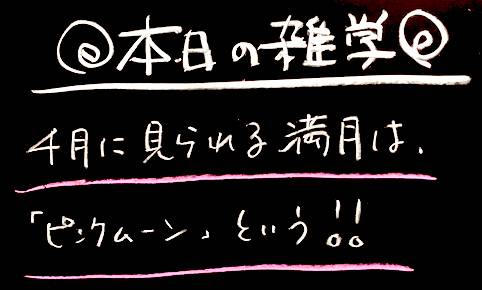 @本日の雑学@
4月に見られる満月は、
「ピンクムーン」という!!